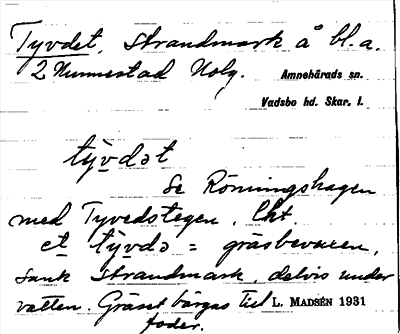 Tyvdet, strandmark å bl.a.
2 Nunnestad Nolg. Amnehärads sn.
Vadsbo hd. Skar. l.
tŷvdət
Se Röningshagen
med Tyvedstegen, Cht.
et tŷvdə = gräsbevuxen,
sank strandmark, delvis under
vatten. Gräset bärgas till L. MADSÉN 1931
foder.